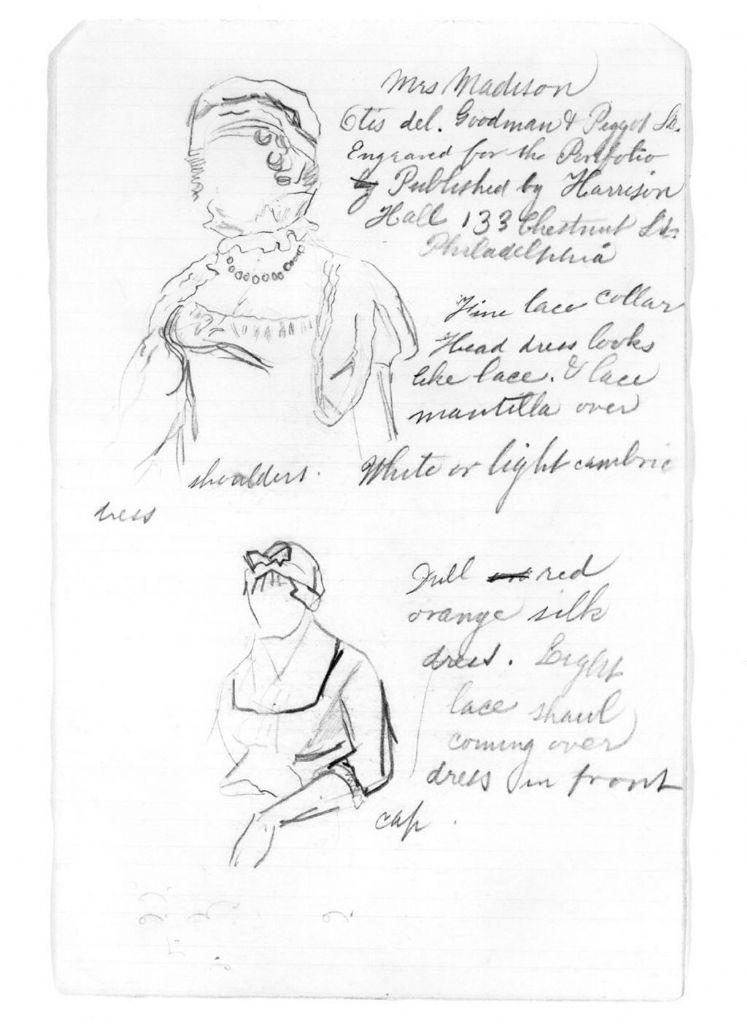 Mrs Madison
Otis del. Goodman & Piggot Sc.
Engraved for the Portfolio
by Published by Harrison
Hall 133 Chestnut St.
Philadelphia
Fine lace collar
Head dress looks
like lace. & lace
mantilla over
shoulders. White or light cambric
dress
Dull red
orange silk
dress. Light
lace shawl
coming over
dress in front
cap.